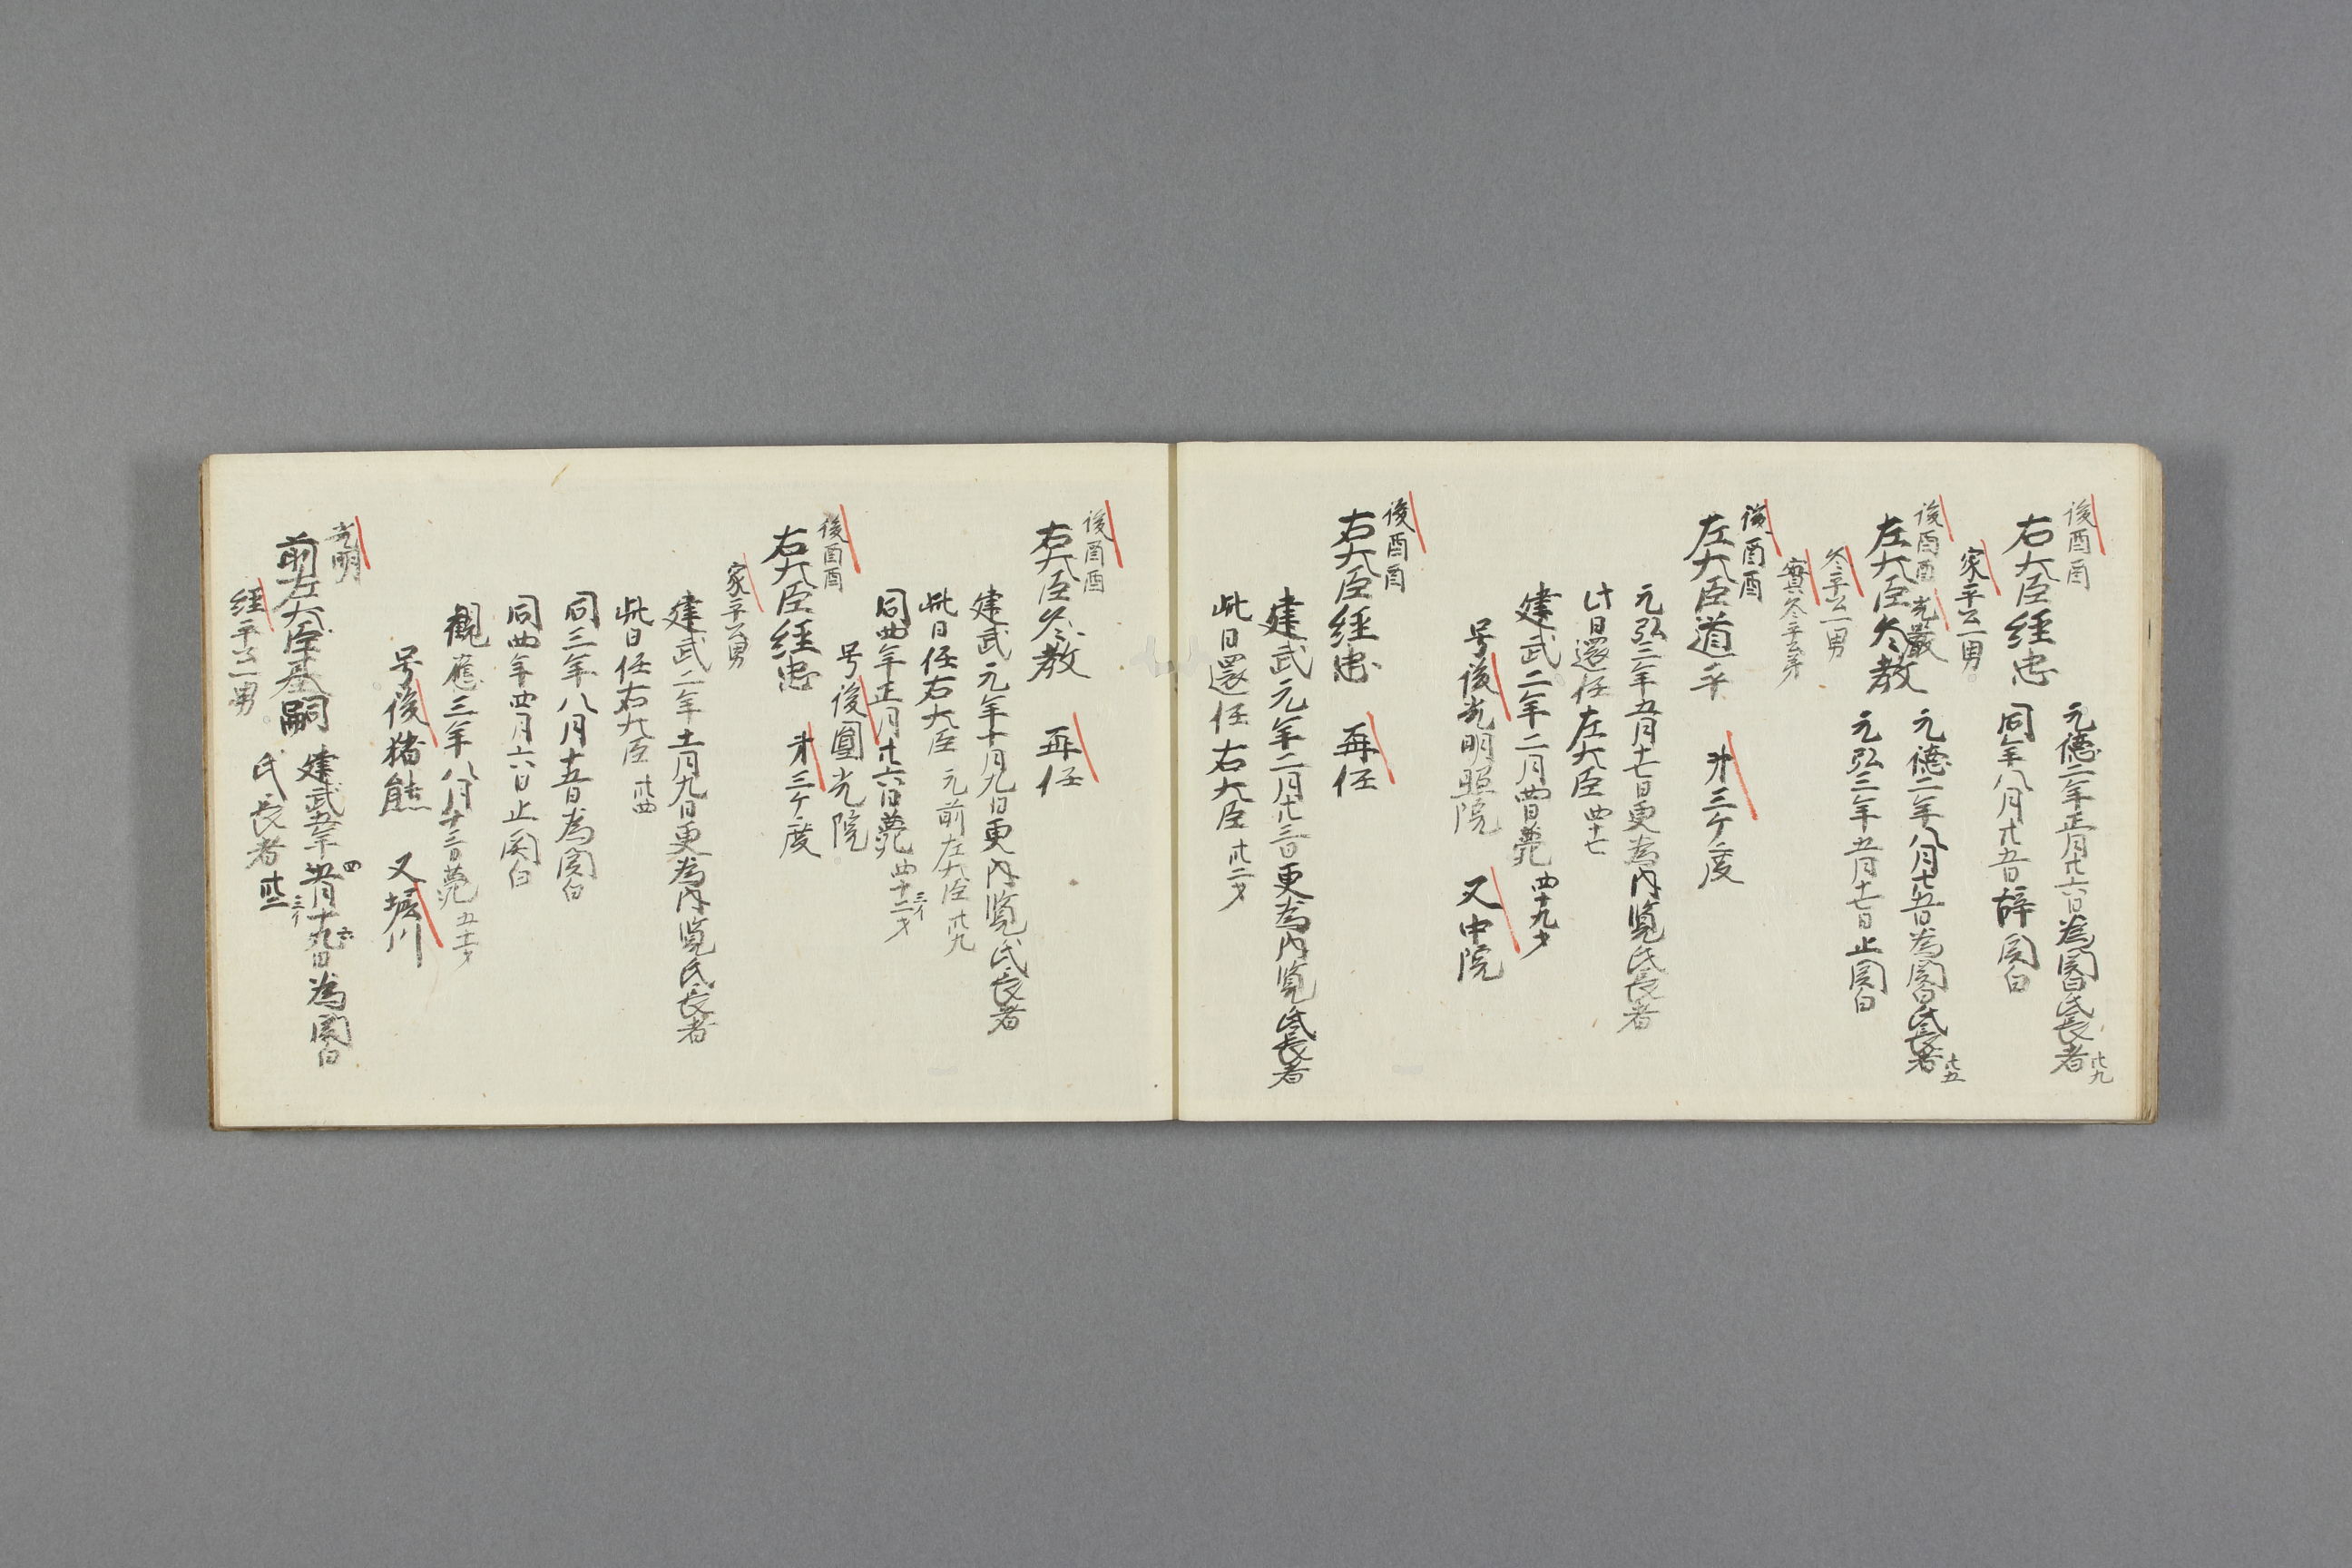 後酉酉
右大臣経忠
元徳二年正月廿六日為関白氏長者 廿九
同年八月廿五日辞関白
家平公一男
後酉酉 光厳
左大臣冬教
元徳二年八月廿五日為関白氏長者 廿五
元弘三年五月十七日止関白
冬平公一男
実冬平公弟
後酉酉
左大臣道平 㐧三ケ度
元弘三年五月十七日更為内覧氏長者
此日還任左大臣 四十七
建武二年二月四日薨 四十九才
号後光明照院 又中院
後酉酉
右大臣経忠 再任
建武元年二月廿三日更為内覧氏長者
此日還任右大臣 卅二才
後酉酉
右大臣冬教 再任
建武元年十月九日更内覧氏長者
此日任右大臣 元前左大臣 廿九
同四年正月廿六日薨 四十二才 三イ
号後圓光院
後酉酉
右大臣経忠 㐧三ケ度
家平公男
建武二年十一月九日更為内覧氏長者
此日任右大臣 卅四
同三年八月十五日為関白
同四年四月六日止関白
観應三年八月十三日薨 五十一才
号後猪熊 又堀川
光明
前左大臣基嗣
建武五年四月十九日為関白
氏長者 卅二 三イ
経平公一男